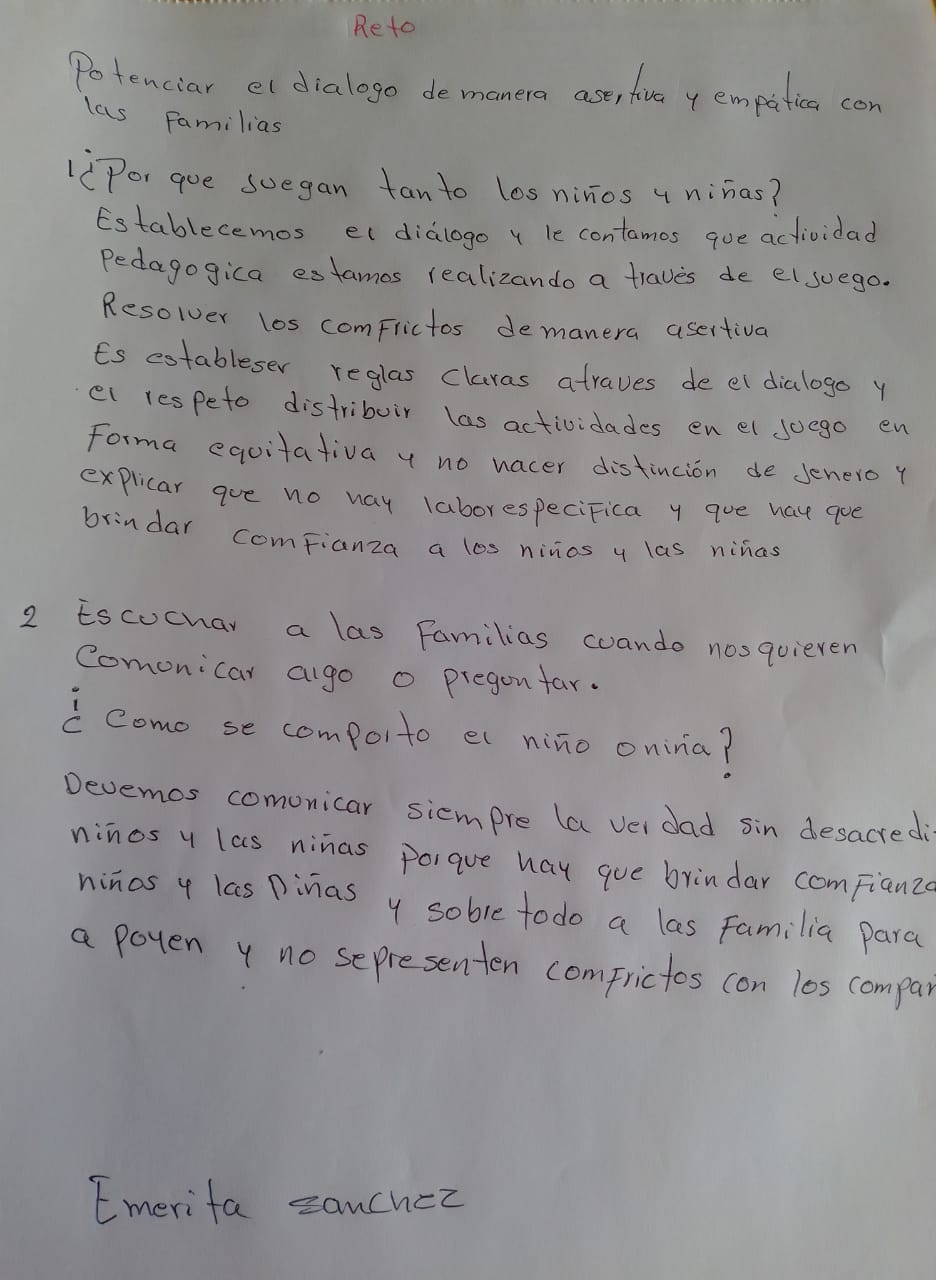 Reto
Potenciar el dialogo de manera asertiva y empática con
las Familias
1¿Por que juegan tanto los niños y niñas?
Establecemos el diálogo y le contamos que actividad
Pedagogica estamos realizando a través de el juego.
Resolver los comFrictos de manera asertiva
Es estableser reglas claras atraves de el dialogo y
el respeto distribuir las actividades en el juego en
Forma equitativa y no hacer distinción de Jenero y
explicar que no hay labor especiFica y que hay que
brindar comFianza a los niños y las niñas
2 Escuchar a las Familias cuando nos quieren
Comunicar algo o preguntar.
¿Como se comporto el niño o niña?
Devemos comunicar siempre la verdad sin desacredi
niños y las niñas Porque hay que brindar comFianza
niños y las niñas y sobre todo a las Familia para
a poyen y no sepresenten comFrictos con los compañ
Emerita sanchez